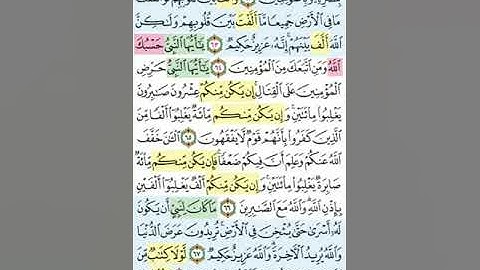 مَا فِى ٱلْأَرْضِ جَمِيعًا مَّآ أَلَّفْتَ بَيْنَ قُلُوبِهِمْ وَلَٰكِنَّ
ٱللَّهَ أَلَّفَ بَيْنَهُمْ ۚ إِنَّهُۥ عَزِيزٌ حَكِيمٌ ٦٣ يَٰٓأَيُّهَا ٱلنَّبِىُّ حَسْبُكَ
ٱللَّهُ وَمَنِ ٱتَّبَعَكَ مِنَ ٱلْمُؤْمِنِينَ ٦٤ يَٰٓأَيُّهَا ٱلنَّبِىُّ حَرِّضِ
ٱلْمُؤْمِنِينَ عَلَى ٱلْقِتَالِ ۚ إِن يَكُن مِّنكُمْ عِشْرُونَ صَٰبِرُونَ
يَغْلِبُوا۟ مِا۟ئَتَيْنِ ۚ وَإِن يَكُن مِّنكُم مِّا۟ئَةٌ يَغْلِبُوٓا۟ أَلْفًا مِّنَ
ٱلَّذِينَ كَفَرُوا۟ بِأَنَّهُمْ قَوْمٌ لَّا يَفْقَهُونَ ٦٥ ٱلْـَٰٔنَ خَفَّفَ
ٱللَّهُ عَنكُمْ وَعَلِمَ أَنَّ فِيكُمْ ضَعْفًا ۚ فَإِن يَكُن مِّنكُم مِّا۟ئَةٌ
صَابِرَةٌ يَغْلِبُوا۟ مِا۟ئَتَيْنِ ۚ وَإِن يَكُن مِّنكُمْ أَلْفٌ يَغْلِبُوٓا۟ أَلْفَيْنِ
بِإِذْنِ ٱللَّهِ ۗ وَٱللَّهُ مَعَ ٱلصَّٰبِرِينَ ٦٦ مَا كَانَ لِنَبِىٍّ أَن يَكُونَ
لَهُۥٓ أَسْرَىٰ حَتَّىٰ يُثْخِنَ فِى ٱلْأَرْضِ ۚ تُرِيدُونَ عَرَضَ ٱلدُّنْيَا
وَٱللَّهُ يُرِيدُ ٱلْـَٔاخِرَةَ ۗ وَٱللَّهُ عَزِيزٌ حَكِيمٌ ٦٧ لَّوْلَا كِتَٰبٌ مِّنَ